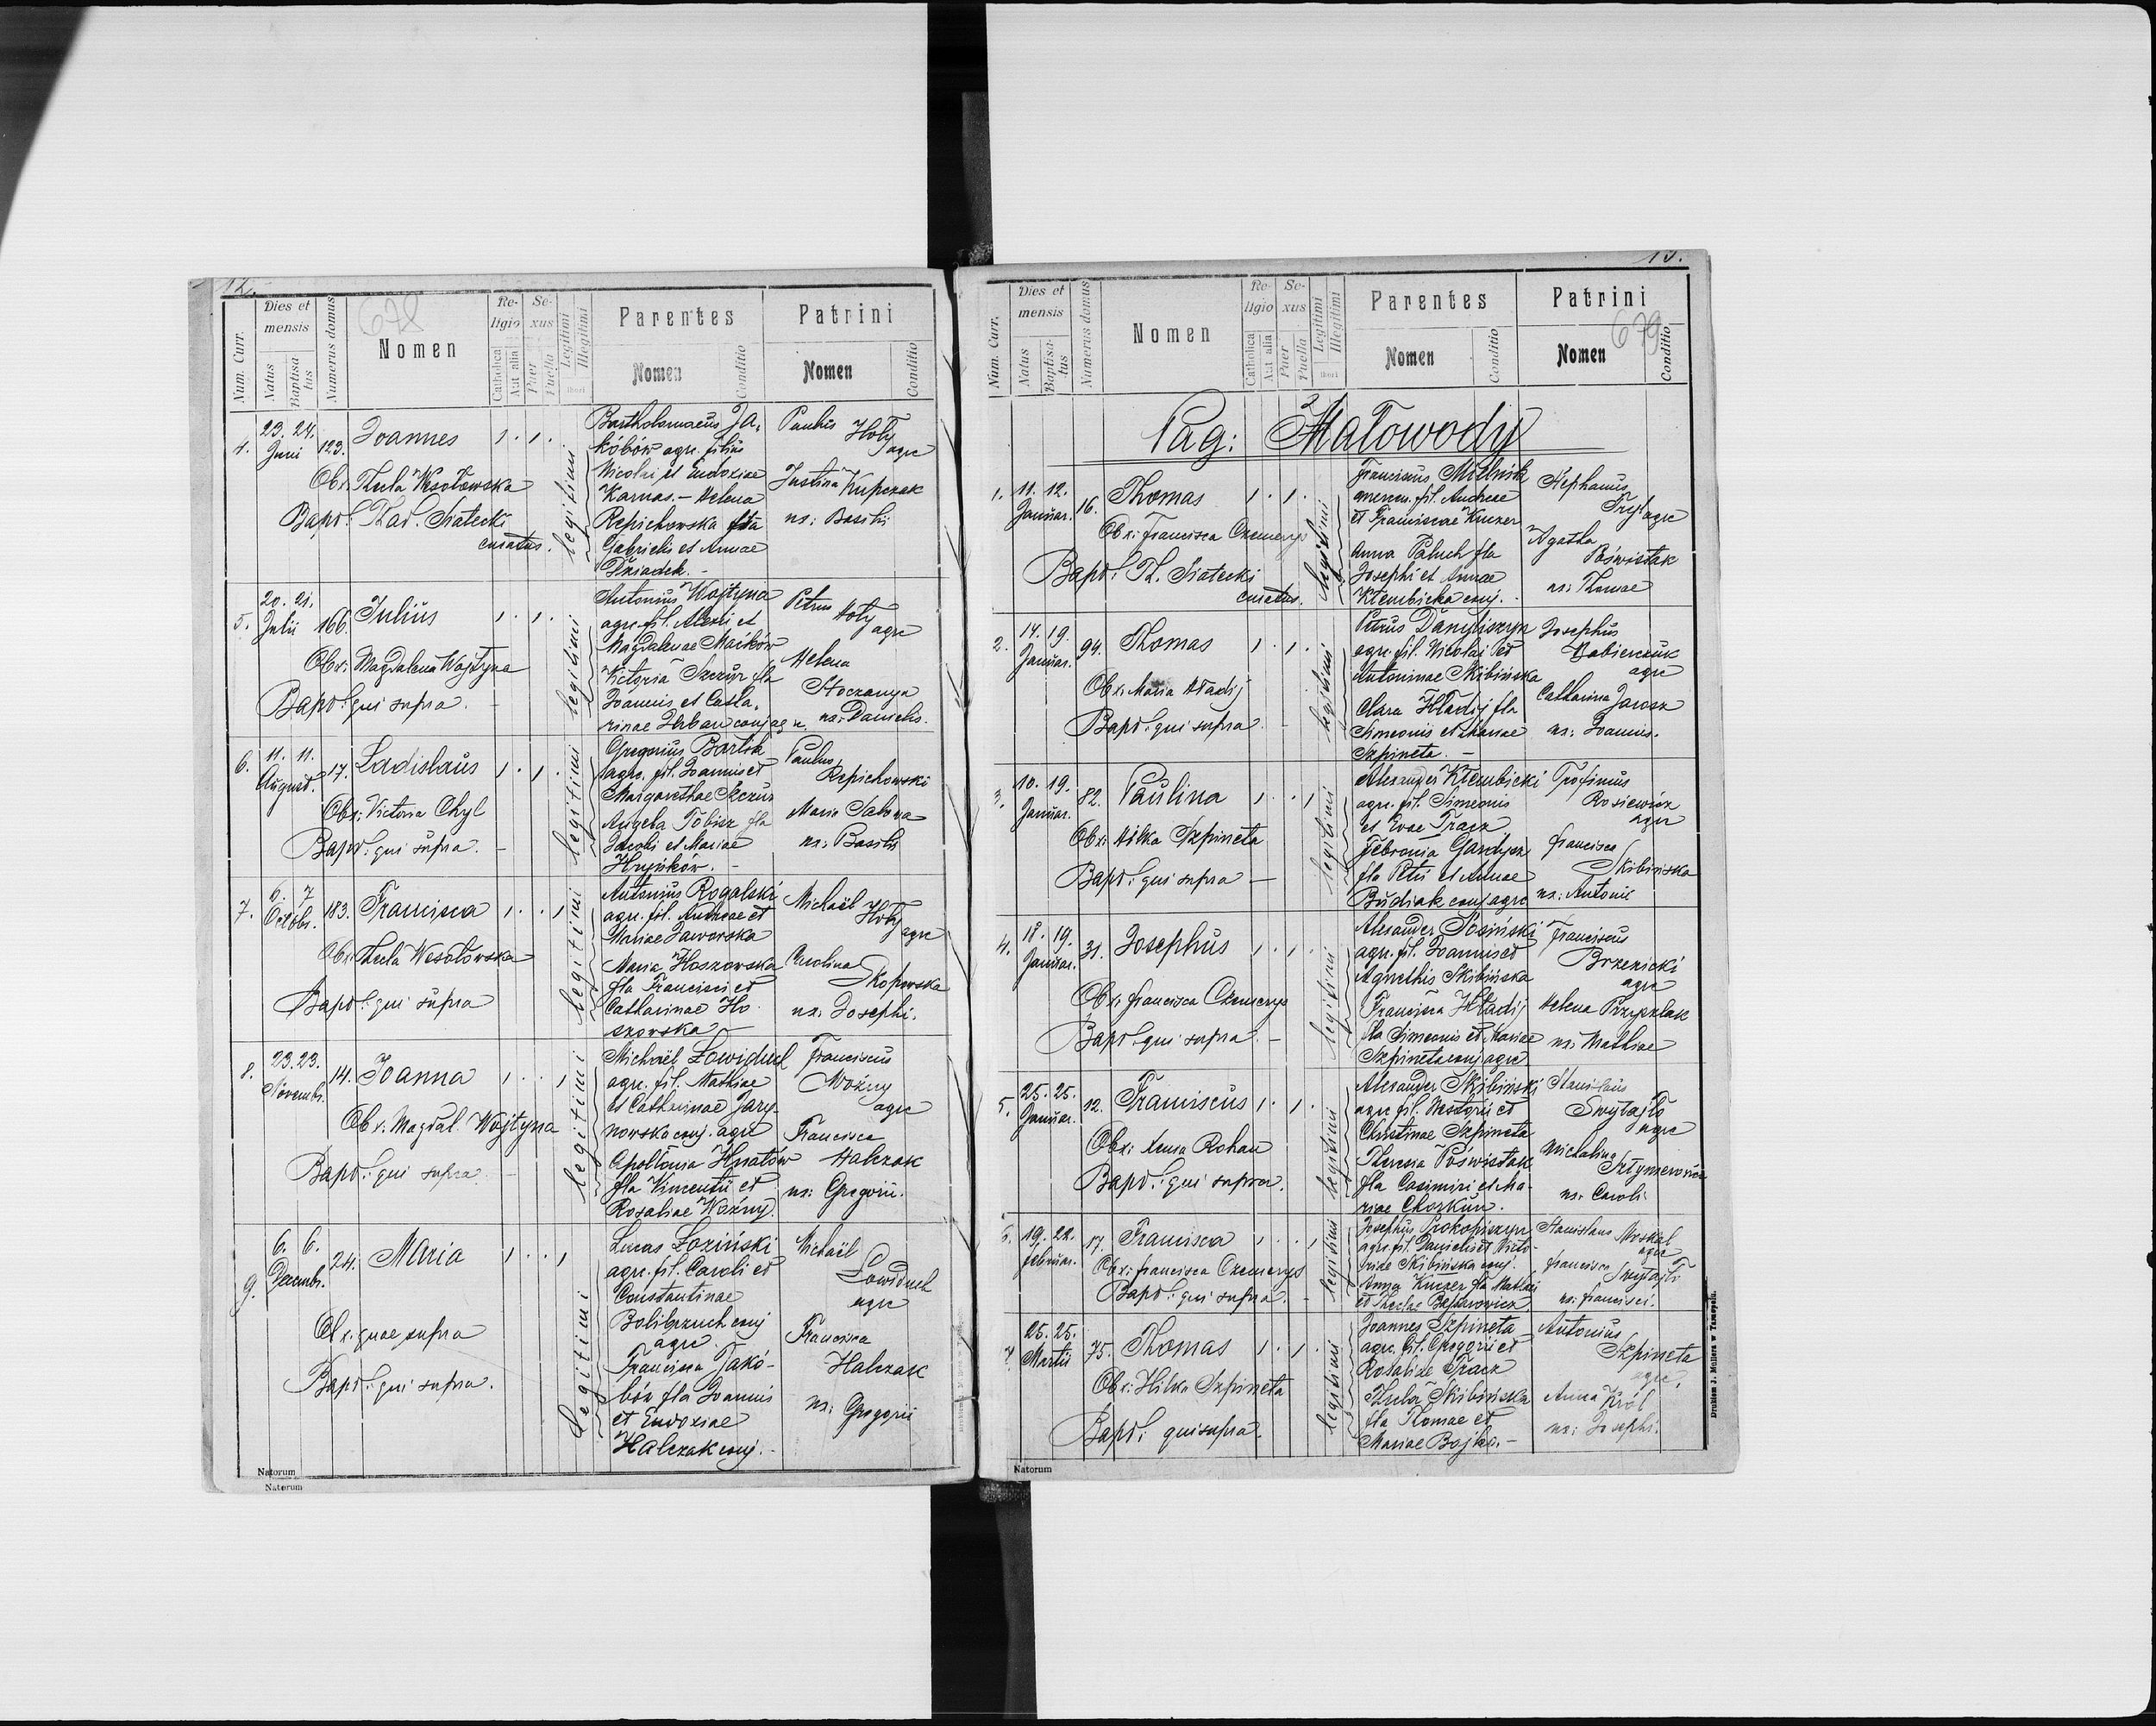 12.
678
Num. Curr.
Dies et mensis
Natus
Baptisatus
Numerus domus
Nomen
Religio
Catholica
Aut alia
Sexus
Puer
Puella
Legitimi
Illegitimi
thori
Parentes
Nomen
Conditio
Patrini
Nomen
Conditio
4.
23. 24.
Juni
123.
Joannes
1. 1.
Obx. Thecla Wesołowska
Bapt. Thad. Siatecki
curatus.
legitimi
Bartholomaeus Ja-
kóbów agrc. filius
Nicolai et Eudoxiae
Karnas. - Helena
Repichowska fla
Gabrielis et Annae
Dziadek. -
Paulus Hoły
agrc
Justina Kupczak
ux: Basilii
5.
20. 21.
Julii
166.
Julius
1. 1.
Obx: Magdalena Wojtyna
Bapt: qui supra. -
legitimi
Antonius Wojtyna
agrc. fil. Alexii et
Magdalenae Maćków
Victoria Szczur fla
Joannis et Catha-
rinae Urban conj agrc.
Petrus Hoły
agrc
Helena
ux: Danielis.
6.
11. 11.
August.
17.
Ladislaus
1. 1.
Obx: Victoria Chyl
Bapt: qui supra. -
legitimi
Gregorius Bartek
agrc. fil. Joannis et
Margarethae Szczur
Angela Tobisz fla
Jacobi et Mariae
Hryńków. -
Paulus
Repichowski
Maria
ux: Basilii
7.
6. 7
Octobr.
183.
Francisca
1. . 1
Obx. Thecla Wesołowska
Bapt: qui supra
legitimi
Antonius Rogalski
agrc. fil. Andreae et
Mariae Jaworska
Maria Hoszowska
fla Francisci et
Catharinae Ho-
szowska -
Michaël Hoły
agrc
Carolina
Skoporska
ux. Josephi.
8.
23. 23.
Novembr.
14.
Joanna
1. . 1
Obx. Magdal. Wojtyna
Bapt: qui supra -
legitimi
Michael Łowiduch
agrc. fil. Mathiae
et Catharinae Jary-
nowska conj. agrc
Apollonia Hnatów
fla Vincentii et
Rosaliae Woźny.
Franciscus
Woźny
agrc
Francisca
Halczak
ux: Gregorii.
9.
6. 6.
Decembr.
24.
Maria
1. . 1
Obx: quae supra
Bapt: qui supra.
legitimi
Lucas Łoziński
agrc. fil. Caroli et
Constantinae
Bolibrzuch conj
agrc
Francisca Jakó-
bów fla Joannis
et Eudoxiae
Halczak conj. -
Michaël
Łowiduch
agrc
Francisca
Halczak
ux: Gregorii
Natorum
Natorum
13.
679
Num. Curr.
Dies et mensis
Natus
Baptisatus
Numerus domus
Nomen
Religio
Catholica
Aut alia
Sexus
Puer
Puella
Legitimi
Illegitimi
thori
Parentes
Nomen
Conditio
Patrini
Nomen
Conditio
Pag: Małowody
1.
11. 12.
Januar.
16.
Thomas
1. 1.
Obx: Francisca Czemerys
Bapt: Th. Siatecki
curatus.
legitimi
Franciscus Mielnik
fil. Andreae
et Franciscae Kuczer
Anna Paluch fla
Josephi et Annae
Kłembicka conj. -
Stephanus
Fryt agrc
Agatha
Poświstak
ux: Thomae
2.
14. 19.
Januar.
94.
Thomas
1. 1.
Obx. Maria Hładij
Bapt: qui supra -
legitimi
Petrus Danyliszyn
agrc. fil. Nicolai et
Antoninae Skibińska
Clara Hładij fla
Simeonis et Mariae
Szpineta. -
Josephus
Babierczuk
agrc
Catharina Jarosz
ux: Joannis.
3.
10. 19.
Januar.
82.
Paulina
1. . 1
Obx: Hilka Szpineta
Bapt: qui supra -
legitimi
Alexander Kłembicki
agrc. fil. Simeonis
et Evae Tracz
Febronia Gardysz
fla Petri et Annae
Budiak conj agrc
Trofimus
Rosiewicz
agrc
Francisca
Skibińska
ux: Antonii
4.
18. 19.
Januar.
31.
Josephus
1. 1.
Obx: Francisca Czemerys
Bapt: qui supra. -
legitimi
Alexander Sosiński
agrc. fil. Joannis et
Agnethis Skibińska
Francisca Hładij
fla Simeonis et Mariae
Szpineta conj agrc
Franciscus
Brzezicki
agrc
Helena Przyszlak
ux: Mathiae
5.
25. 25.
Januar.
12.
Franciscus
1. 1.
Obx: Xenia Rohan
Bapt: qui supra.
legitimi
Alexander Skibiński
agrc fil. Nestorii et
Christinae Szpineta
Theresia Poświstak
fla Casimiri et Ma-
riae Chorkun.
Stanislaus
Swytajło
agrc
Michalina
ux: Caroli
6.
19. 22.
Februar.
17.
Francisca
1. . 1
Obx: Francisca Czemerys
Bapt: qui supra. -
legitimi
Josephus Prokopiszyn
agrc. fil. Danielis et Victo-
riae Skibińska conj.
Anna Kuczer fla Mathaei
et Theclae Baptarowicz.
Stanislaus Moskal
agrc
Francisca Swytajło
ux: Francisci.
7.
25. 25.
Martii
75.
Thomas
1. 1.
Obx: Hilka Szpineta
Bapt: qui supra.
legitimi
Joannes Szpineta
agrc. fil. Gregorii et
Rosaliae Tracz
Thecla Skibińska
fla Thomae et
Mariae Bojko. -
Antonius
Szpineta
agrc.
Anna Król
ux: Josephi.
Natorum
Drukiem J. Müllera w Tarnopolu.